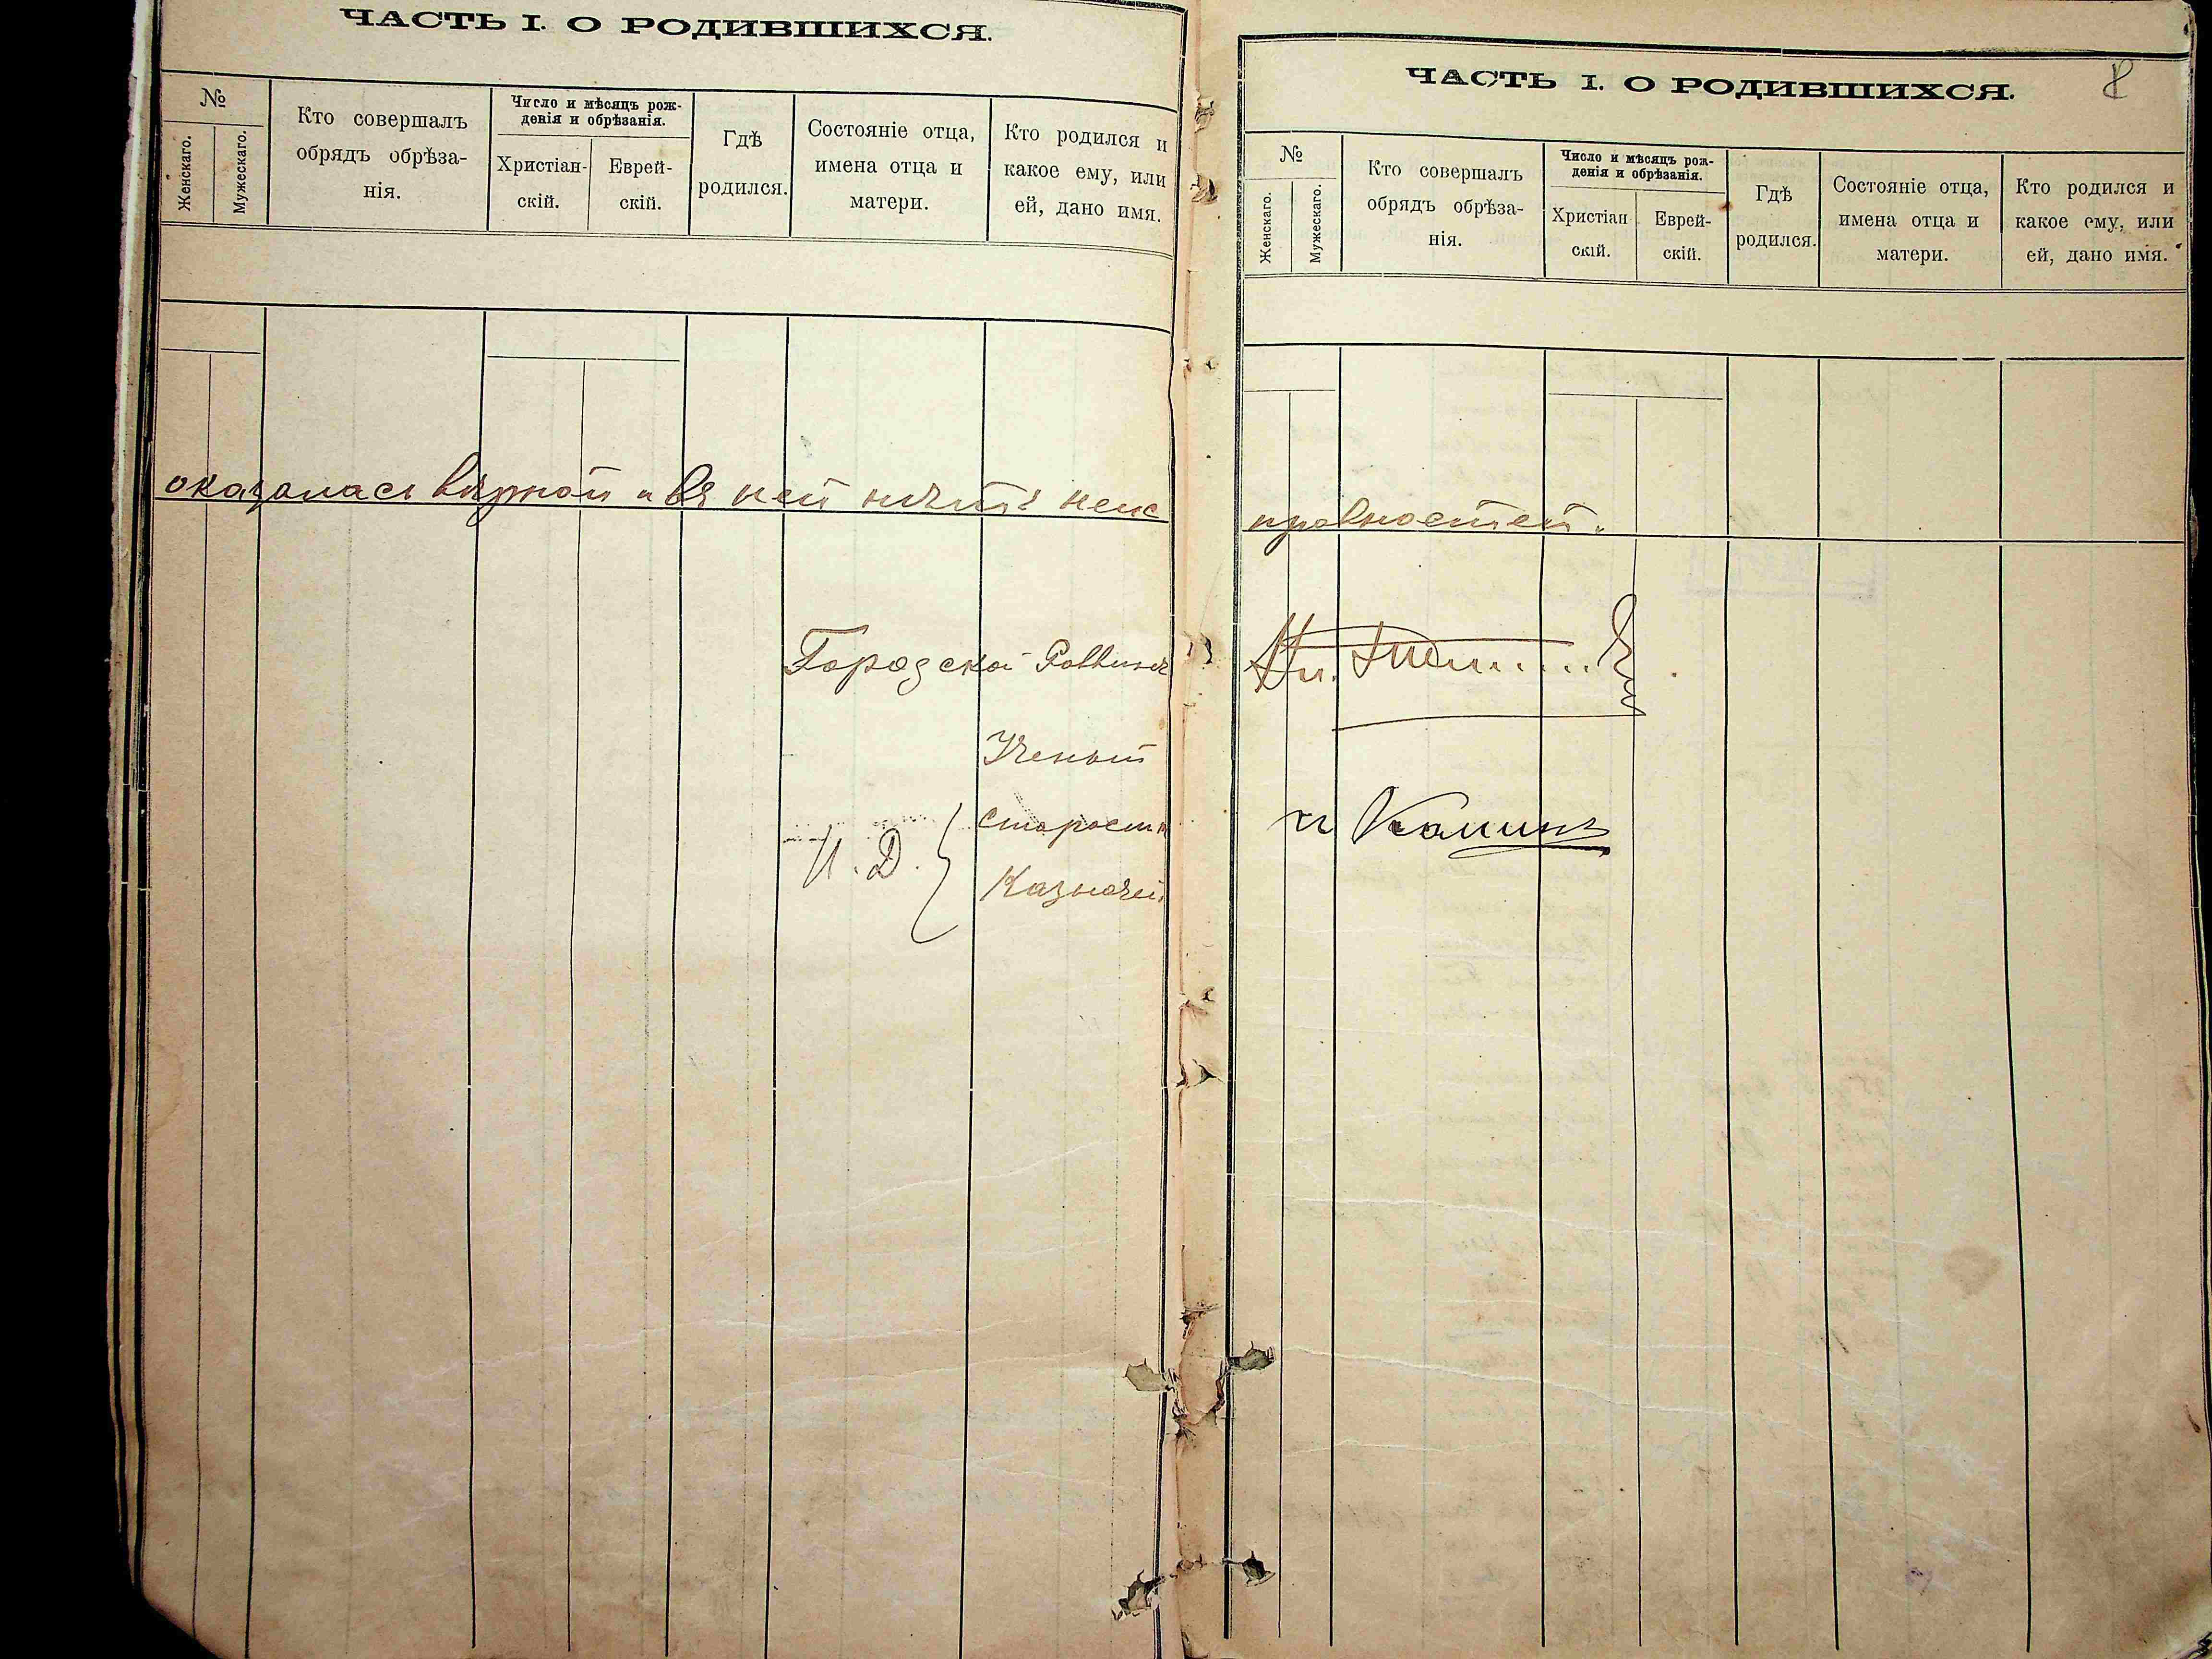 ЧАСТЬ I. О РОДИВШИХСЯ.
№
Женскаго.
Мужескаго.
Кто совершалъ
обрядъ обрѣза-
нія.
Число и мѣсяцъ рож-
денія и обрѣзанія.
Христіан-
скій.
Еврей-
скій.
Гдѣ
родился.
Состояніе отца,
имена отца и
матери.
Кто родился и
какое ему, или
ей, дано имя.
оказалась вѣрной и въ ней нѣтъ неис
Городской Раввинъ
Ученый
Староста
И. Д.
Казначей
ЧАСТЬ I. О РОДИВШИХСЯ.
8
№
Женскаго.
Мужескаго.
Кто совершалъ
обрядъ обрѣза-
нія.
Число и мѣсяцъ рож-
денія и обрѣзанія.
Христіан
скій.
Еврей-
скій.
Гдѣ
родился.
Состояніе отца,
имена отца и
матери.
Кто родился и
какое ему, или
ей, дано имя.
правностей.